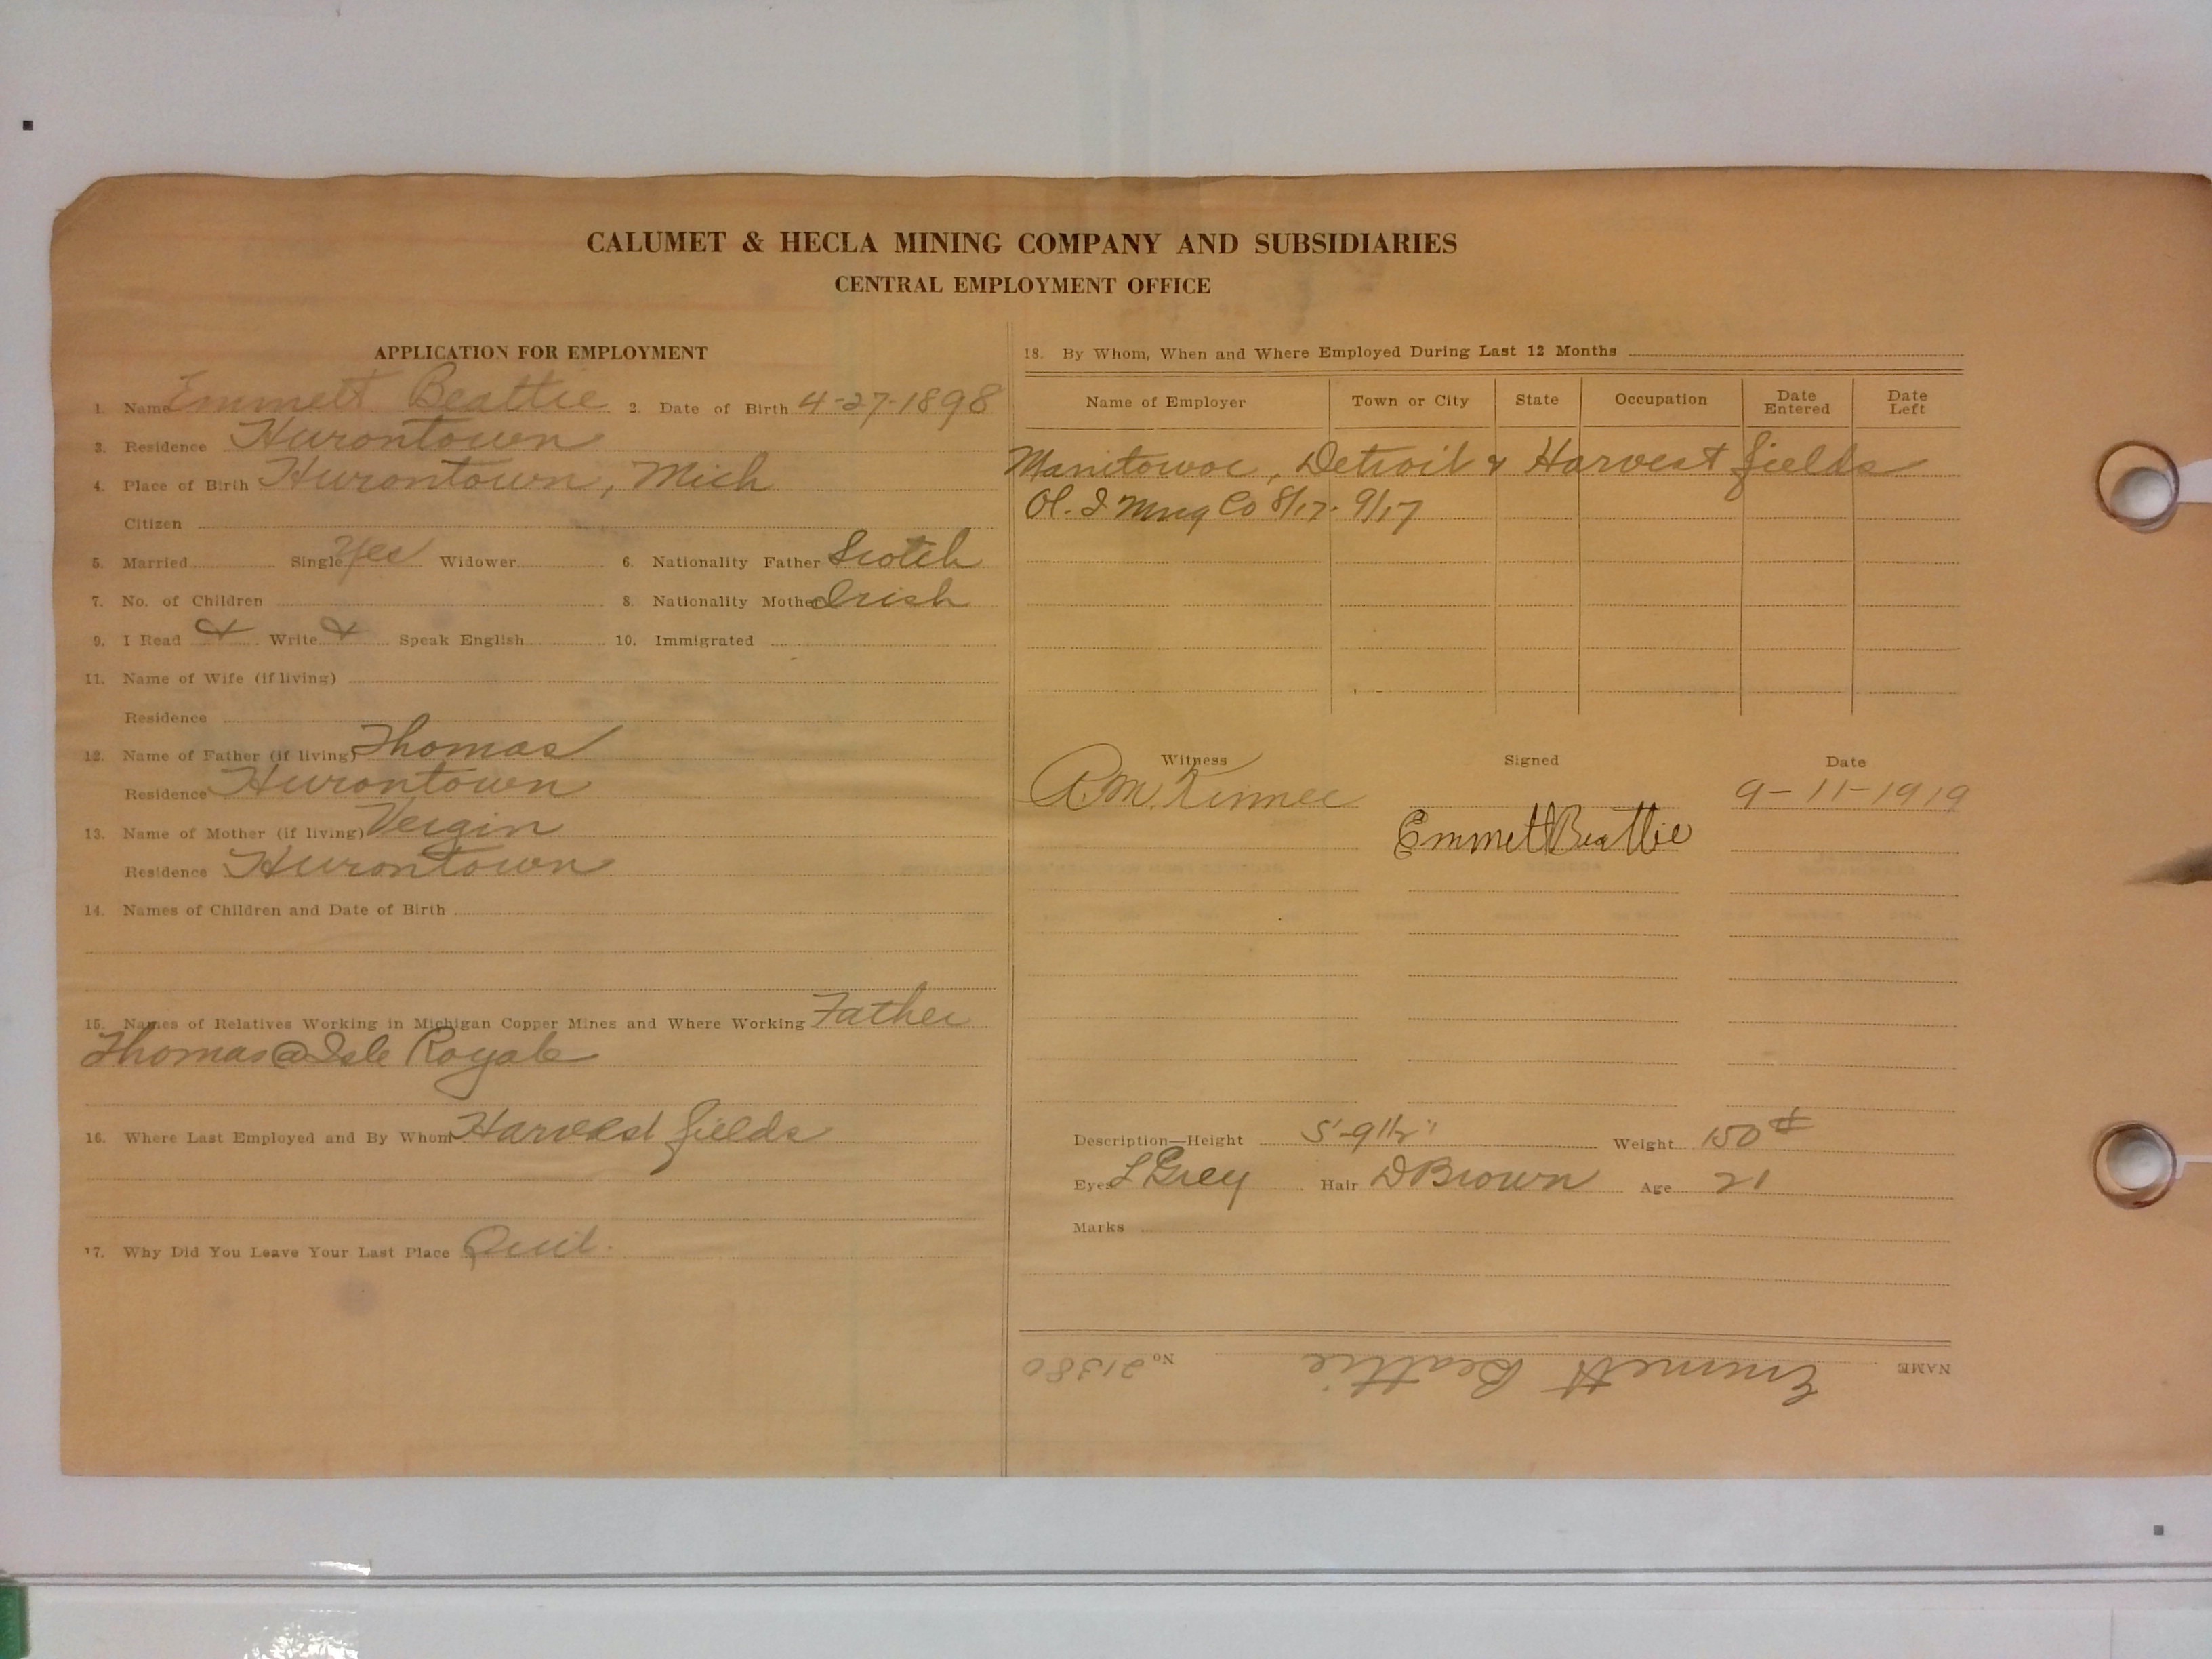 CALUMET & HECLA MINING COMPANY AND SUBSIDIARIES
CENTRAL EMPLOYMENT OFFICE
APPLICATION FOR EMPLOYMENT
1. Name Emmett Beattie 2. Date of Birth 4-27-1898
3. Residence Hurontown
4. Place of Birth Hurontown, Mich
Citizen
5. Married Single Yes Widower 6. Nationality Father Scotch
7. No. of Children 8. Nationality Mother Irish
9. I Read Write Speak English 10. Immigrated
11. Name of Wife (if living)
Residence
12. Name of Father (if living) Thomas
Residence Hurontown
13. Name of Mother (if living) Vergin
Residence Hurontown
14. Names of Children and Date of Birth
15. Names of Relatives Working in Michigan Copper Mines and Where Working Father
Thomas @ Isle Royale
16. Where Last Employed and By Whom Harvest fields
17. Why Did You Leave Your Last Place Quit.
18. By Whom, When and Where Employed During Last 12 Months
Name of Employer Town or City State Occupation Date Entered Date Left
Manitowoc, Detroit & Harvest fields
Mng Co 8/17 - 9/17
Witness Signed Date
9-11-1919
Emmet Beattie
Description—Height 5'-9 1/2" Weight 150 #
Eyes L Grey Hair D Brown Age 21
Marks
NAME Emmett Beattie No 21380